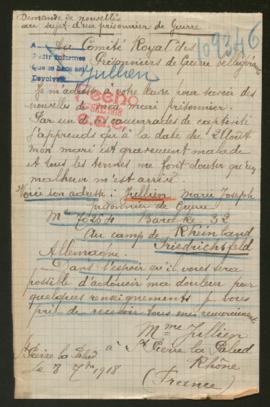 Demande de nouvelles
au sujet d'un prisonnier de Guerre
109346
Le Comité Royal des
Prisonniers de Guerre
Pedir informes
Devolver
Jullien
Je m'adresse à votre pour avoir des
nouvelles de mon mari prisonnier.
Hecho
Par un de ses camarades de captivité
j'apprends qu'à la date du 2 Août
mon mari est gravement malade
et tous les termes me font douter qu'un
malheur m'est arrivé.
Voici son adresse : Jullien Marie Joseph
prisonnier de Guerre
Baracke 32
au camp de Rheinland
Friedrichsfeld
Allemagne.
Dans l'espoir qu'il vous sera
possible d'adoucir ma douleur par
quelques renseignements je vous
prie de recevoir tous mes remerciements
Mme Jullien
à St Pierre la Palud
Rhône
(France)
St Pierre la Palud
le 8 7bre 1918